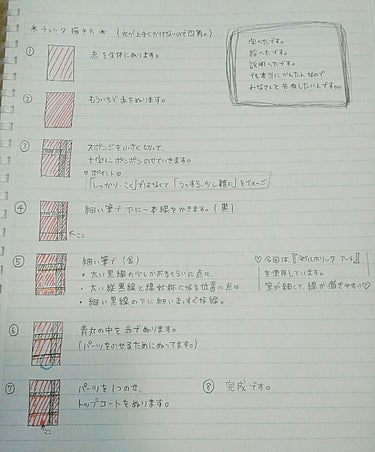 *チェック 描き方* (丸が上手くかけないので四角。)
字へたです。
絵へたです。
説明へたです。
でも本当にかんたんなので
みなさんと共有したいんです。。
① 赤を全体にぬります。
② もういちど赤をぬります。
③ スポンジを小さく切って、
十字にポンポンのせていきます。
ポイント
「しっかり、こく」ではなくて「うっすら、少し雑に」をイメージ
④ 細い筆で下に一本線をかきます。(黒)
ここ
⑤ 細い筆で(金)
・太い黒線の少しかぶるくらいに点々。
・太い縦黒線と線対称になる位置に点々。
・細い黒線の下に細いまっすぐな線。
♡今回は『ネイルホリック アート』
を使用しています。
筆が細くて、線が描きやすい♡
⑥ 青丸の中を赤でぬります。
(パーツをのせるためにぬってます。)
⑦ パーツを1つのせ、
トップコートをぬります。
ここ
⑧ 完成です。